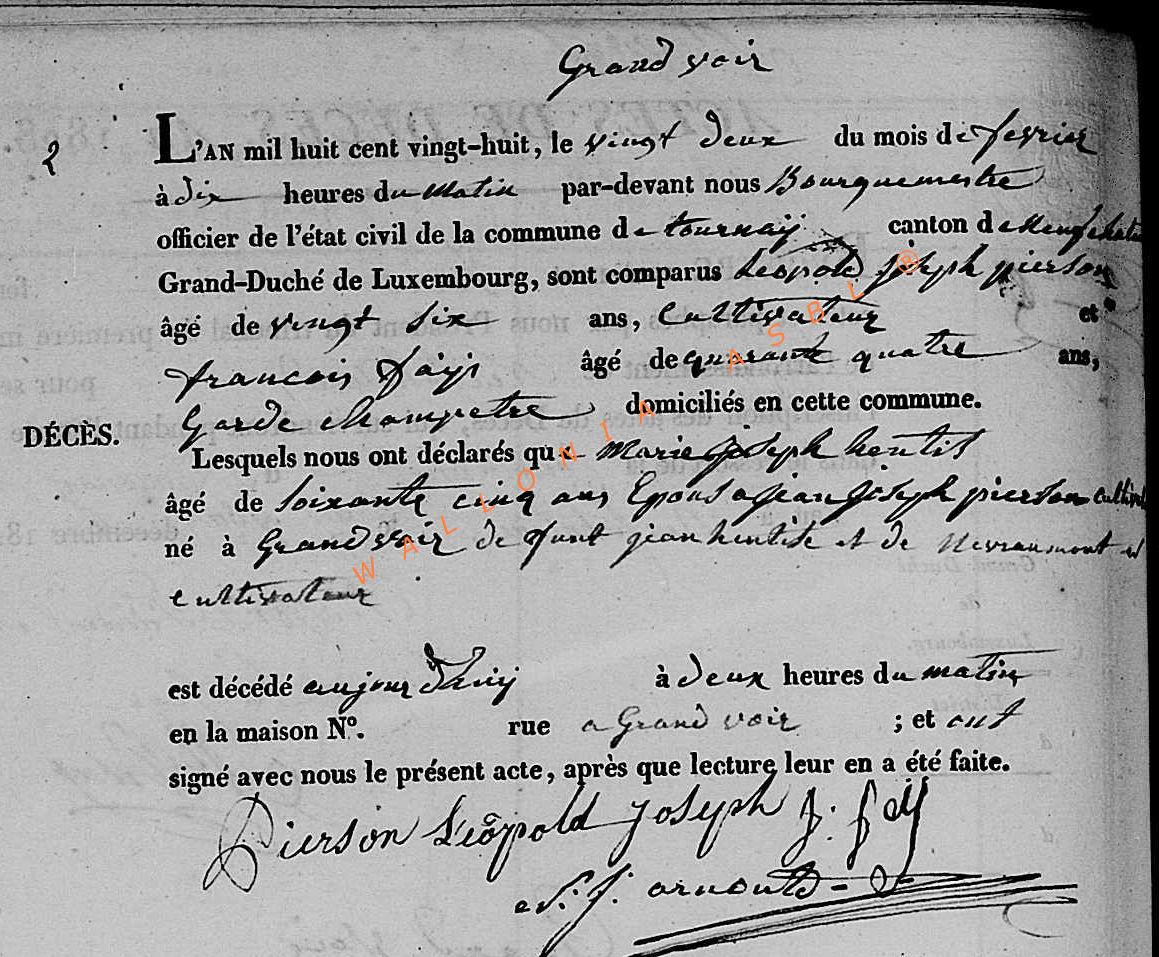 Grand voir
2
L'AN mil huit cent vingt-huit, le vingt deux du mois de fevrier
à dix heures du matin par-devant nous Bourguemestre
officier de l'état civil de la commune de tournay canton de Neufchateau
Grand-Duché de Luxembourg, sont comparus Leopold Joseph pierson
âgé de vingt six ans, Cultivateur et
francois fays âgé de quarante quatre ans,
Garde champetre domiciliés en cette commune.
DÉCÈS.
Lesquels nous ont déclarés que Marie Joseph hentis
âgé de Soixante cinq ans Epouse a jean Joseph pierson
né à Grandvoir de funt jean hentise et de Nevraumont
cultivateur
est décédé aujourd'huy à deux heures du matin
en la maison N°. rue a Grand voir ; et ont
signé avec nous le présent acte, après que lecture leur en a été faite.
Pierson Léopold Joseph J: fay
J. arnould
WALLONIA ASBL ®